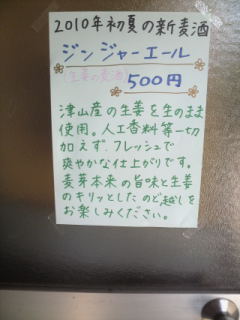 2010年初夏の新麦酒
ジンジャーエール
(生姜の麦酒) 500円
津山産の生姜を生のまま
使用。人工香料等一切
加えず、フレッシュで
爽やかな仕上がりです。
麦芽本来の旨味と生姜
のキリッとしたのど越しを
お楽しみください。